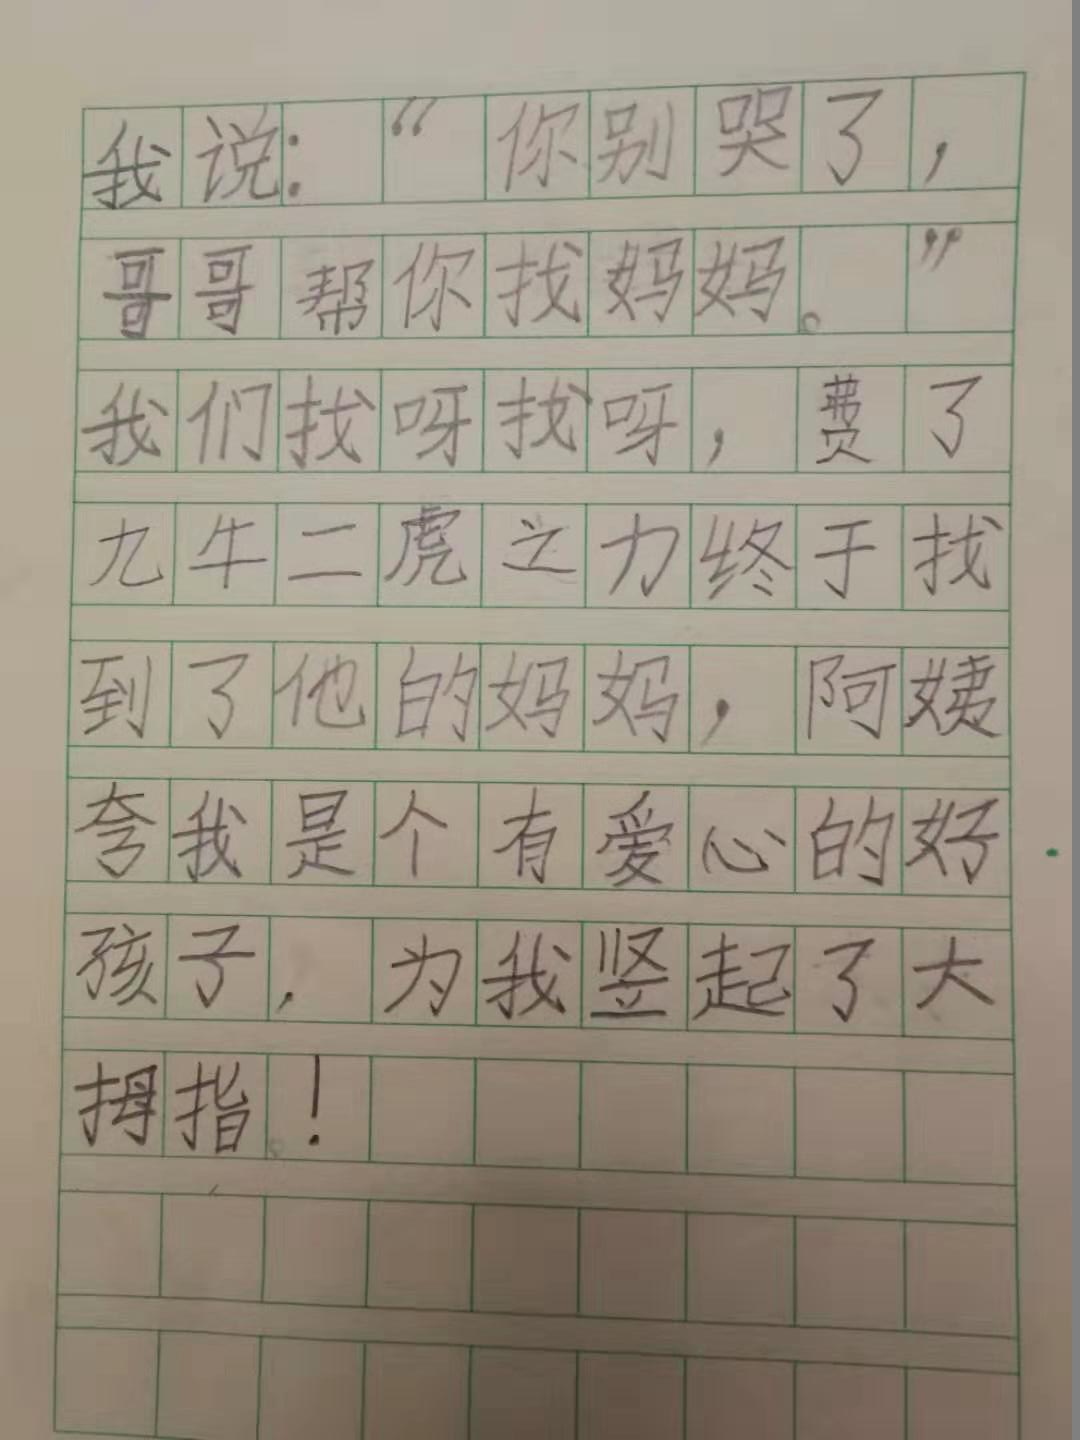 我说：“你别哭了，
哥哥帮你找妈妈。”
我们找呀找呀，费了
九牛二虎之力终于找
到了他的妈妈，阿姨
夸我是个有爱心的好
孩子，为我竖起了大
拇指！